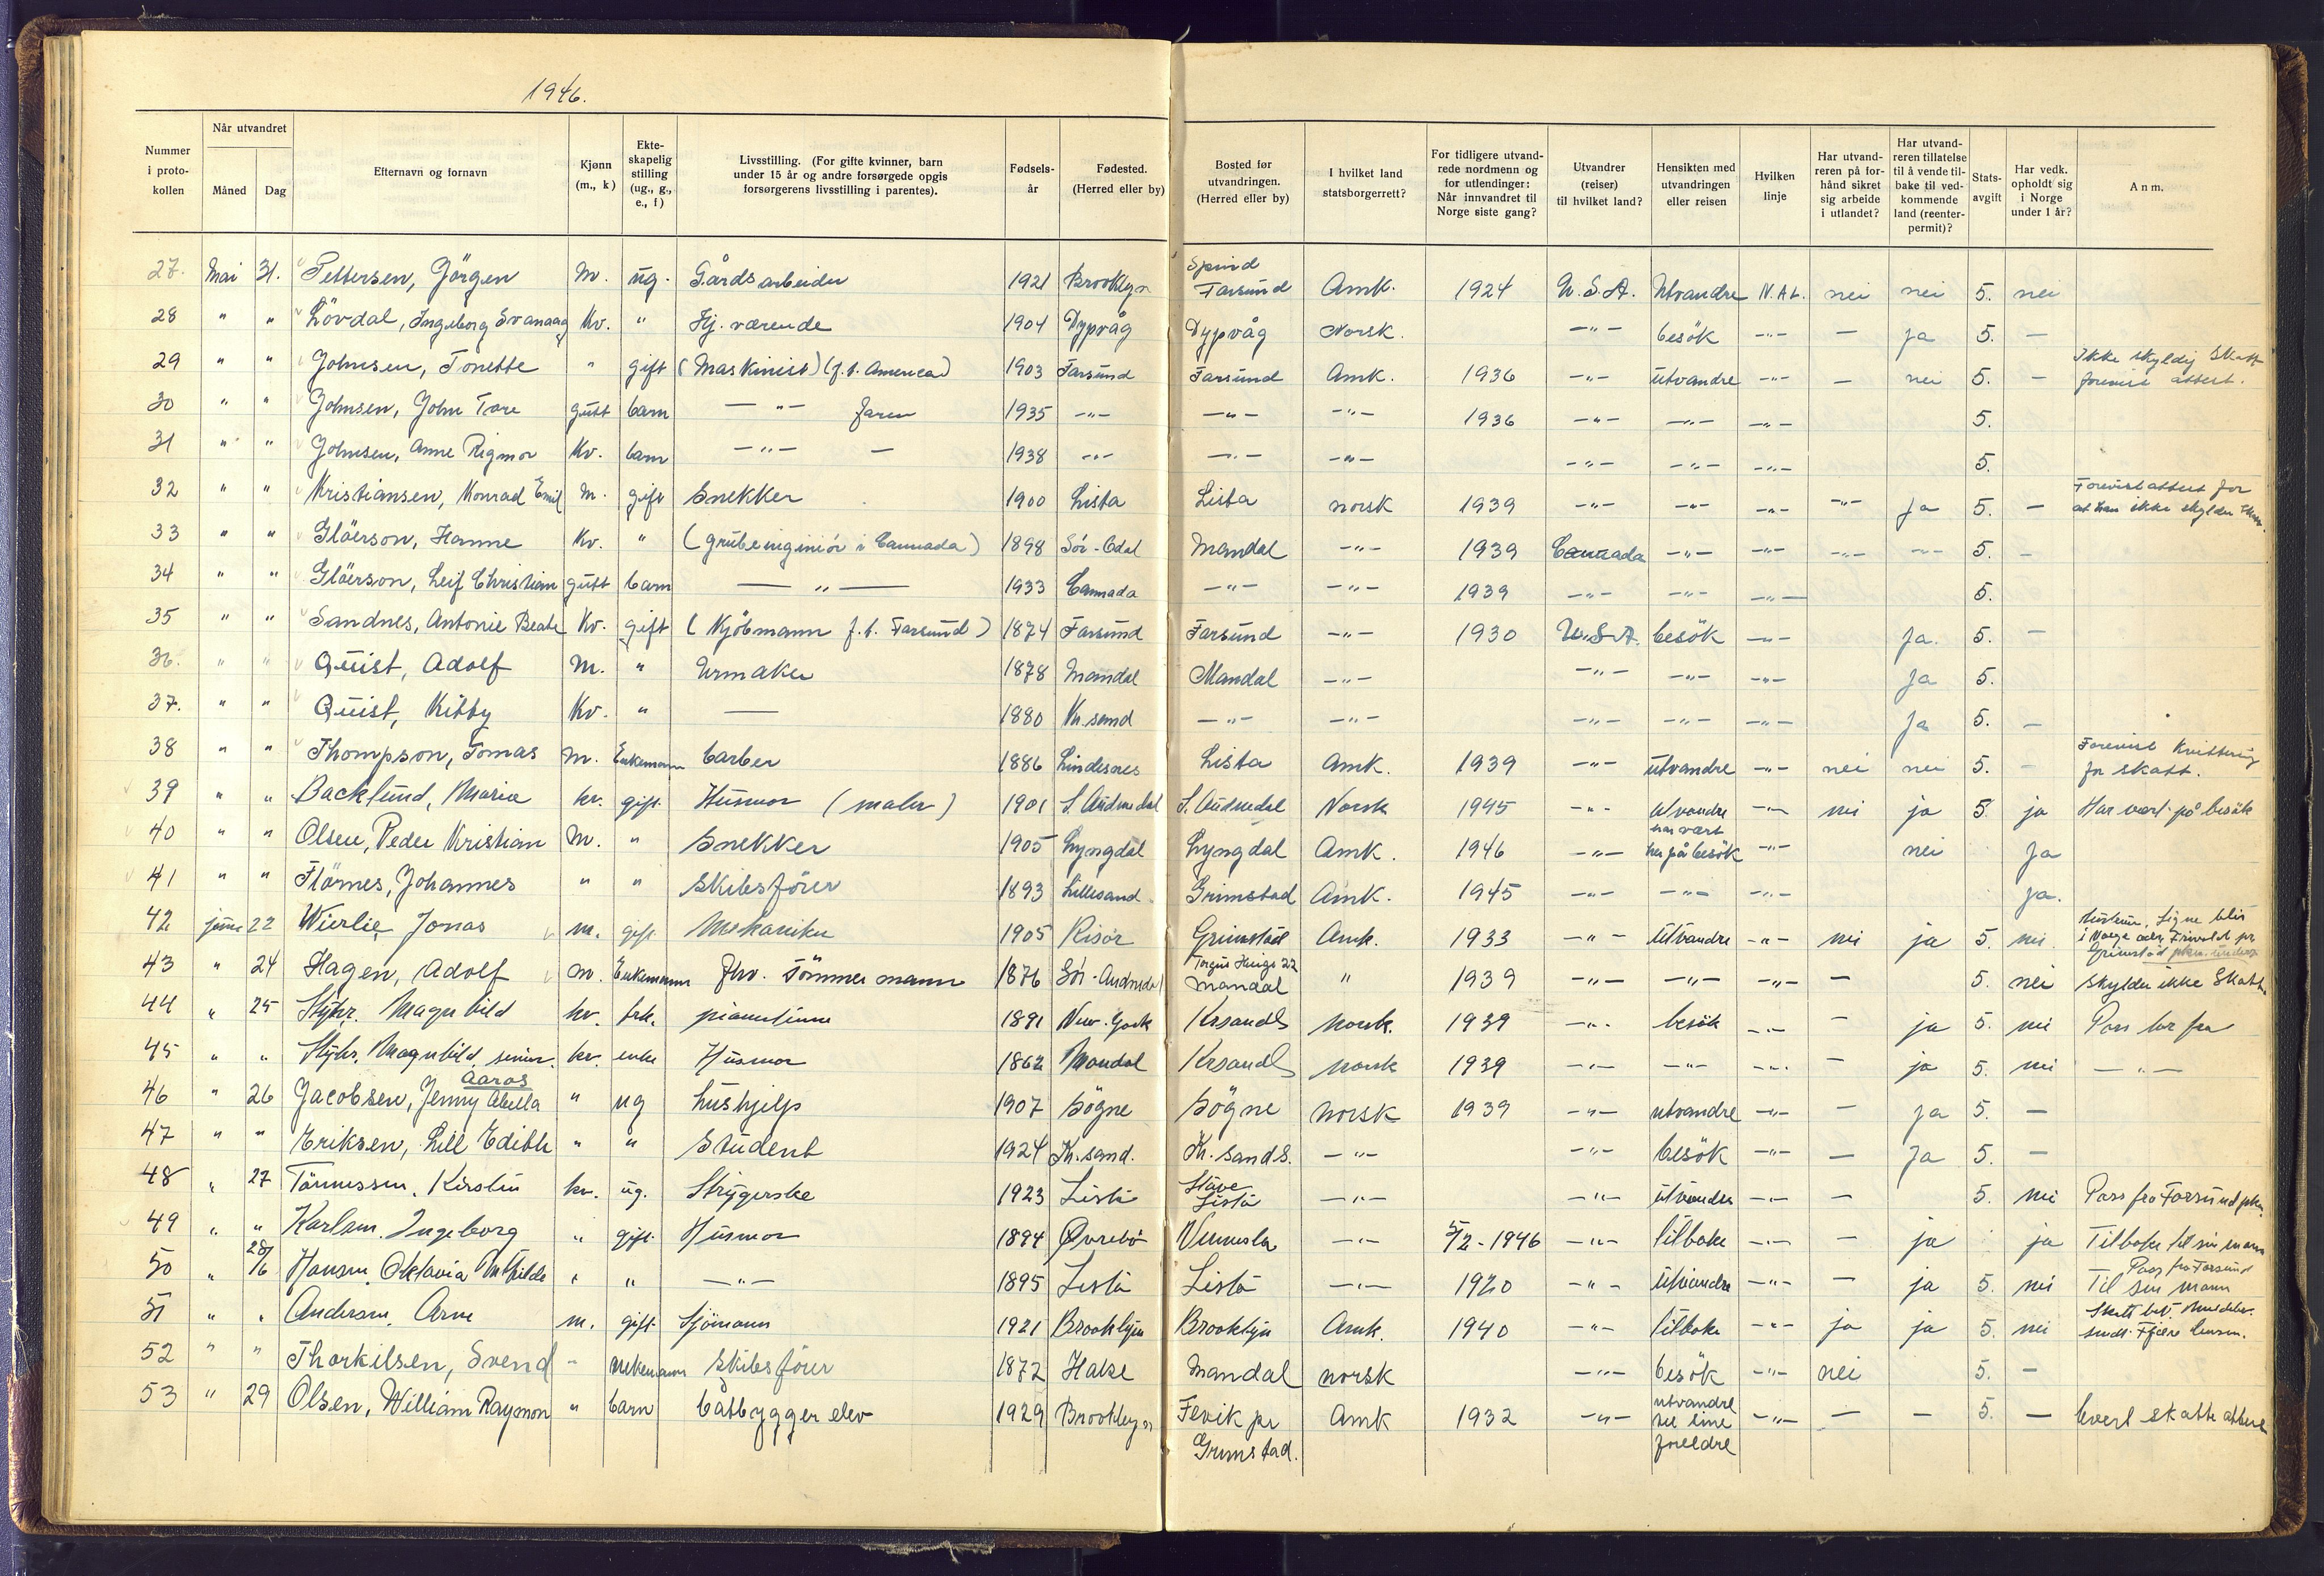 1946.
Nummer i protokollen | Når utvandret Måned | Dag | Efternavn og fornavn | Kjønn (m., k) | Ekteskapelig stilling (ug., g., e., f) | Livsstilling. (For gifte kvinner, barn under 15 år og andre forsørgede opgis forsørgerens livsstilling i parentes). | Fødselsår | Fødested. (Herred eller by) | Bosted før utvandringen. (Herred eller by) | I hvilket land statsborgerrett? | For tidligere utvandrede nordmenn og for utlendinger: Når innvandret til Norge siste gang? | Utvandrer (reiser) til hvilket land? | Hensikten med utvandringen eller reisen | Hvilken linje | Har utvandreren på forhånd sikret sig arbeide i utlandet? | Har utvandreren tillatelse til å vende tilbake til vedkommende land (reenterpermit)? | Statsavgift | Har vedk. opholdt sig i Norge under 1 år? | Anm.
27. Mai 31. Pettersen, Görgen M. ug. Gårdsarbeider 1921 Brooklyn Spind Farsund Amk. 1924 U.S.A. Utvandre N.A.L. nei nei 5. nei
28 " " Lövdal, Ingeborg Svanaug Kv. " Hj. værende 1904 Dypvåg Dypvåg Norsk. -"- besök -"- - Ja 5. -
29 " " Johnsen, Tonette " gift (Maskinist) (f.t. America) 1903 Farsund Farsund Amk. 1936 -"- utvandre -"- - nei 5. - Ikke skyldig Skatt forevist attest.
30 " " Johnsen, John Tore gutt barn -"- faren 1935 -"- -"- -"- 1936 -"- -"- -"- 5.
31 " " Johnsen, Anne Rigmor Kv. barn -"- - 1938 -"- -"- -"- -"- -"- -"- 5.
32 " " Kristiansen, Konrad Emil M. gift Snekker 1900 Lista Lista norsk 1939 -"- -"- -"- -"- Ja 5. - Forevist attest for at han ikke skylder Skatt.
33 " " Glöerson, Hanne Kv. " (grubeingeniör i Cannada) 1898 Sör-Odal Mandal -"- 1939 Cannada -"- -"- -"- -"- 5. -
34 " " Glöerson, Leif Christian gutt barn -"- 1933 Cannada -"- -"- 1939 -"- -"- -"- 5.
35 " " Sandnes, Antonie Beate Kv. gift (Kjöbmann f.t. Farsund) 1874 Farsund Farsund -"- 1930 U.S.A. besök -"- Ja. 5. -
36. " " Quist, Adolf M. " Urmaker 1878 Mandal Mandal -"- -"- -"- -"- Ja 5.
37. " " Quist, Kitty Kv. " - 1880 Kr. sund -"- -"- -"- -"- -"- Ja 5. -
38 " " Thompson, Tomas M. Enkemann barber 1886 Lindesnes Lista Amk. 1939 -"- utvandre -"- nei nei 5. - Forevist Kvittering for skatt.
39 " " Backlund, Marie kv. gift. Husmor (maler) 1901 S. Audnedal S. Audnedal Norsk 1945 -"- utvandre -"- nei ja 5. ja Har vært på besök
40 " " Olsen, Peder Kristian M. " Snekker 1905 Lyngdal Lyngdal Amk. 1946 -"- har vært her på besök -"- nei Ja
41 " " Flörnes, Johannes " " Skibsförer 1893 Lillesand. Grimstad Amk. 1945 -"- -"- -"- ja.
42 juni 22 Wierlie Jonas m. gift Mekaniker 1905 Risör Grimstad Amk. 1933 -"- Utvandre -"- nei ja 5. nei. Hustrun, Signe blir i Norge adr. Frivold pr Grimstad
43 " 24 Hagen, Adolf m. Enkemann fhv. Tömmermann 1876 Sör-Audnedal Torgus Haugs 22 Mandal " 1939 -"- -"- -"- - 5. nei skylder ikke Skatt.
44 " 25 Styhr. Magnhild kv. frk. pianistinne 1891 New-York Krsand S norsk. 1939 -"- besök -"- - ja 5. nei Pass her fra
45 " " Styhr, Magnhild senior. kv. enke Husmor 1862 Mandal Krsand S norsk 1939 -"- -"- -"- - ja 5. nei -"-
46 " 26 Jacobsen, Jenny Abella Aaros " ug hushjelp 1907 Sögne Sögne norsk 1939 -"- utvandre -"- - ja 5. -
47 " " Eriksen, Lill Edith " " Student 1924 Kr. sand. Kr. sand S. -"- -"- besök -"- - Ja 5. -
48 " 27 Tönnessen, Kirstin kv. ug. Strygerske 1923 Lista Stave Lista -"- -"- utvandre -"- - 5. nei Pass fra Farsund pkm.
49 " " Karlsen. Ingeborg " gift. Husmor 1894 Øvrebö Vennesla -"- 5/2-1946 -"- tilbake -"- - ja ja Tilbake til sin mann
50 " 28/6 Hansen, Oktavia Mathilde " " -"- 1895 Lista Lista -"- 1920 -"- Utvandre -"- - ja 5. nei Pass fra Farsund Til sin mann
51 " " Andersen. Arne m. gift. Sjömann 1921 Brooklyn Brooklyn Amk. 1940 -"- tilbake -"- ja ja 5. nei Skatt bet. Fjære lensm.
52 " " Thorkilsen, Svend " enkemann Skibsförer 1872 Halse Mandal norsk -"- besök -"- nei 5. -
53 " 29 Olsen, William Raymon " barn båtbygger elev 1929 Brooklyn Fevik pr Grimstad. Amk 1932 -"- utvandre til sine foreldre -"- - - 5. - levert skatte attest